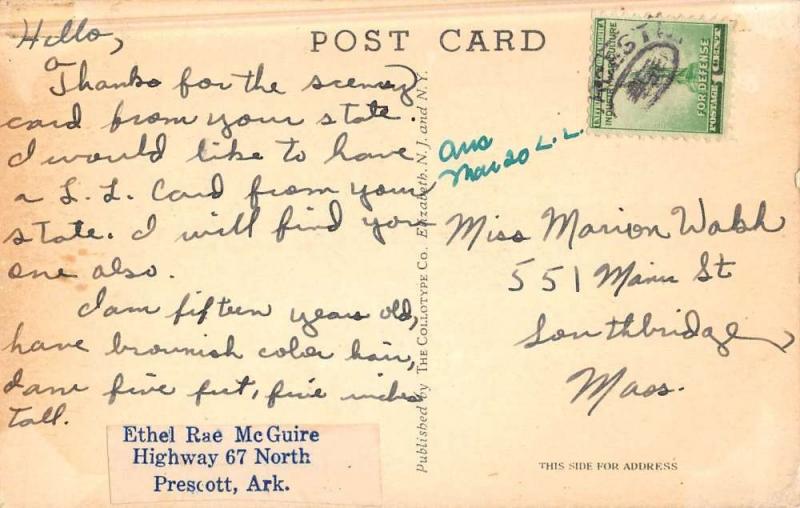 Hello,
Thanks for the scenery
card from your state.
I would like to have
a L. L. Card from your
state. I will find you
one also.
I am fifteen years old,
have brownish color hair,
I am five feet, five inches
tall.
Ethel Rae McGuire
Highway 67 North
Prescott, Ark.
POST CARD
Published by The Collotype Co., Elizabeth, N. J. and N. Y.
INDUSTRY AGRICULTURE
FOR DEFENSE
POSTAGE 1 CENT
Ans
Mar 20 L. L.
Miss Marion Walsh
551 Main St
Southbridge,
Mass.
THIS SIDE FOR ADDRESS